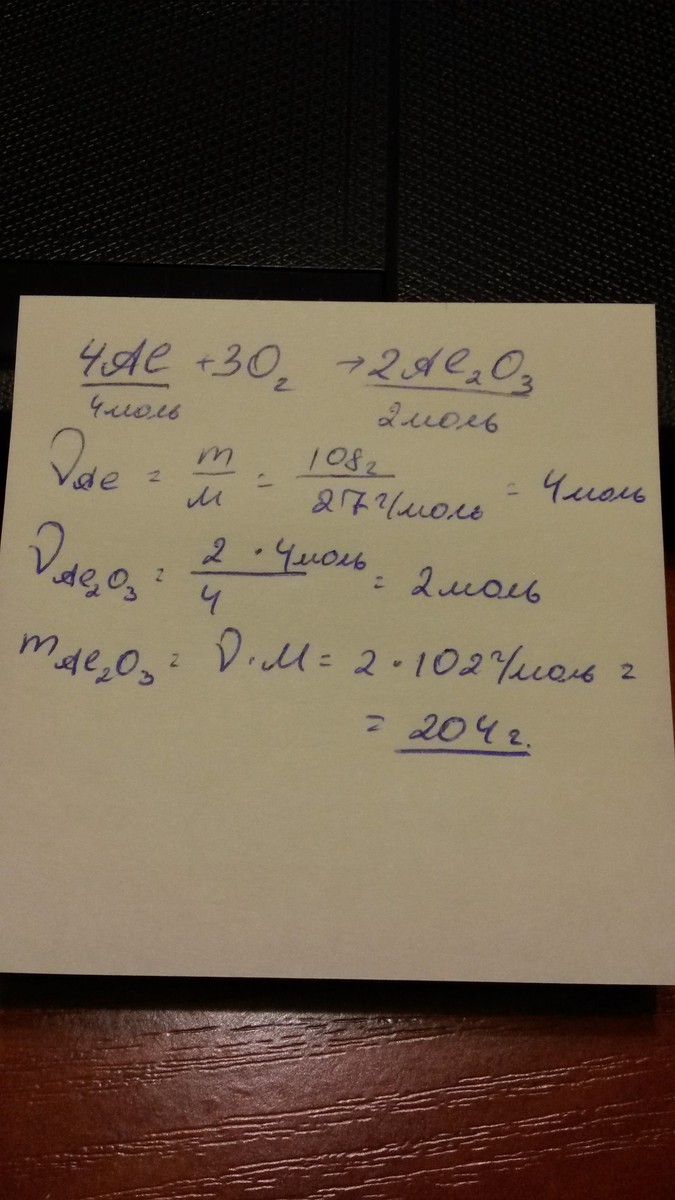 4Al + 3O₂ → 2Al₂O₃
4моль 2моль
νAl = m/M = 108г/27г/моль = 4моль
νAl₂O₃ = 2 · 4моль/4 = 2моль
mAl₂O₃ = ν · M = 2 · 102г/моль =
= 204г.